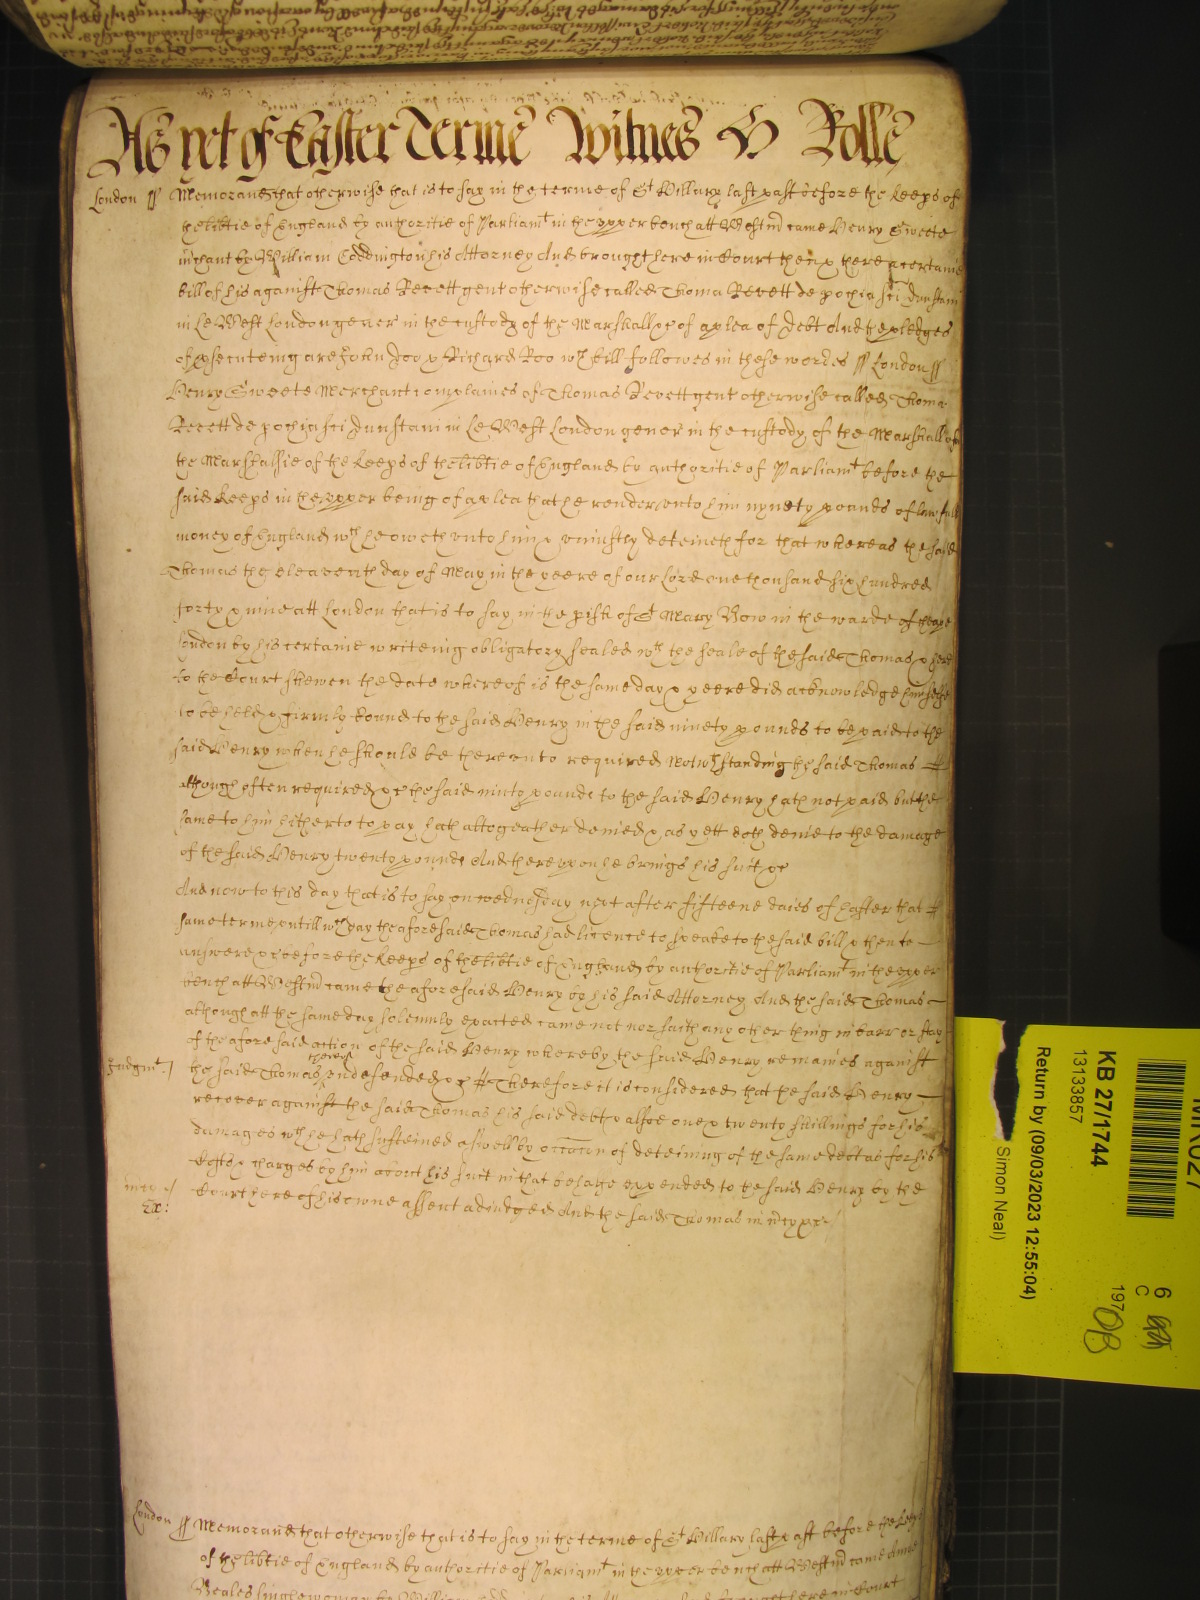 As yet of Easter Terme Witnes H Rolle
London ss Memorand that otherwise that is to say in the terme of St Hillary last past before the Keeps of
the lib̄tie of England by authoritie of Parliamt in the vpper bench att Westm̄ came Henry Sweete
m̄chant by William Coddington his Attorney And brought here in Court then & there a certaine
bill of his against Thomas Revett gent otherwise called Thoma Revett de pochia sci Dunstani
in Le West London gener in the custody of the Marshall &c of a plea of debt And the pledges
of psecuteing are John Doo & Richard Roo wch bill followes in these wordes ss London ss
Henry Sweete Merchant complaines of Thomas Revett gent otherwise called Thoma
Revett de pochia sci Dunstani in Le West London gener in the custody of the Marshall of
the Marshalsie of the Keeps of the lib̄tie of England by authoritie of Parliamt before the
said Keeps in the vpper being of a plea that he render vnto him nynety pounds of lawfull
money of England wch he oweth vnto him & vniustly deteineth for that whereas the said
Thomas the eleaventh day of May in the yeere of our Lord one thousand six hundred
forty & nine att London that is to say in the pish of St Mary Bow in the warde of Cheape
London by his certaine writeing obligatory sealed wth the seale of the said Thomas & here
to the Court shewen the date whereof is the same day & yeere did acknowledge himselfe
to be held & firmly bound to the said Henry in the said ninety pounds to be paid to the
said Henry when he should be therevnto required Notwthstanding he said Thomas
although often required &c the said ninty pounds to the said Henry hath not paid but the
same to him hitherto to pay hath altogeather denied & as yett doth denie to the damage
of the said Henry twenty pounds And therevpon he brings his suit &c
And now to this day that is to say on wednesday next after fifteene daies of Easter that
same terme vntill wch day the aforesaid Thomas had licence to speake to the said bill & then to
answere &c before the Keeps of the lib̄tie of England by authoritie of Parliamt in the vpper
bench att Westm̄ came the aforesaid Henry by his said Attorney And the said Thomas
although att the same day solemnly exacted came not nor saith any other thing in barr or stay
of the aforesaid action of the said Henry whereby the said Henry remaines against
Judgmt the said Thomas therof vndefended &c Therefore it is considered that the said Henry
recover against the said Thomas his said debt & alsoe one & twenty shillings for his
damages wch he hath susteined aswell by occacon of deteining of the same debt as for his
Costs & charges by him about his suit in that behalfe expended to the said Henry by the
Court here of his owne assent adiudged And the said Thomas in m̄cy &c
London ss Memorand that otherwise that is to say in the terme of St Hillary last past before the Keeps
of the lib̄tie of England by authoritie of Parliamt in the vpper bench att Westm̄ came Anne
here in Court
KB 27/1744
13133857
Return by (09/03/2023 12:55:04)
Simon Neal)
6
C
197